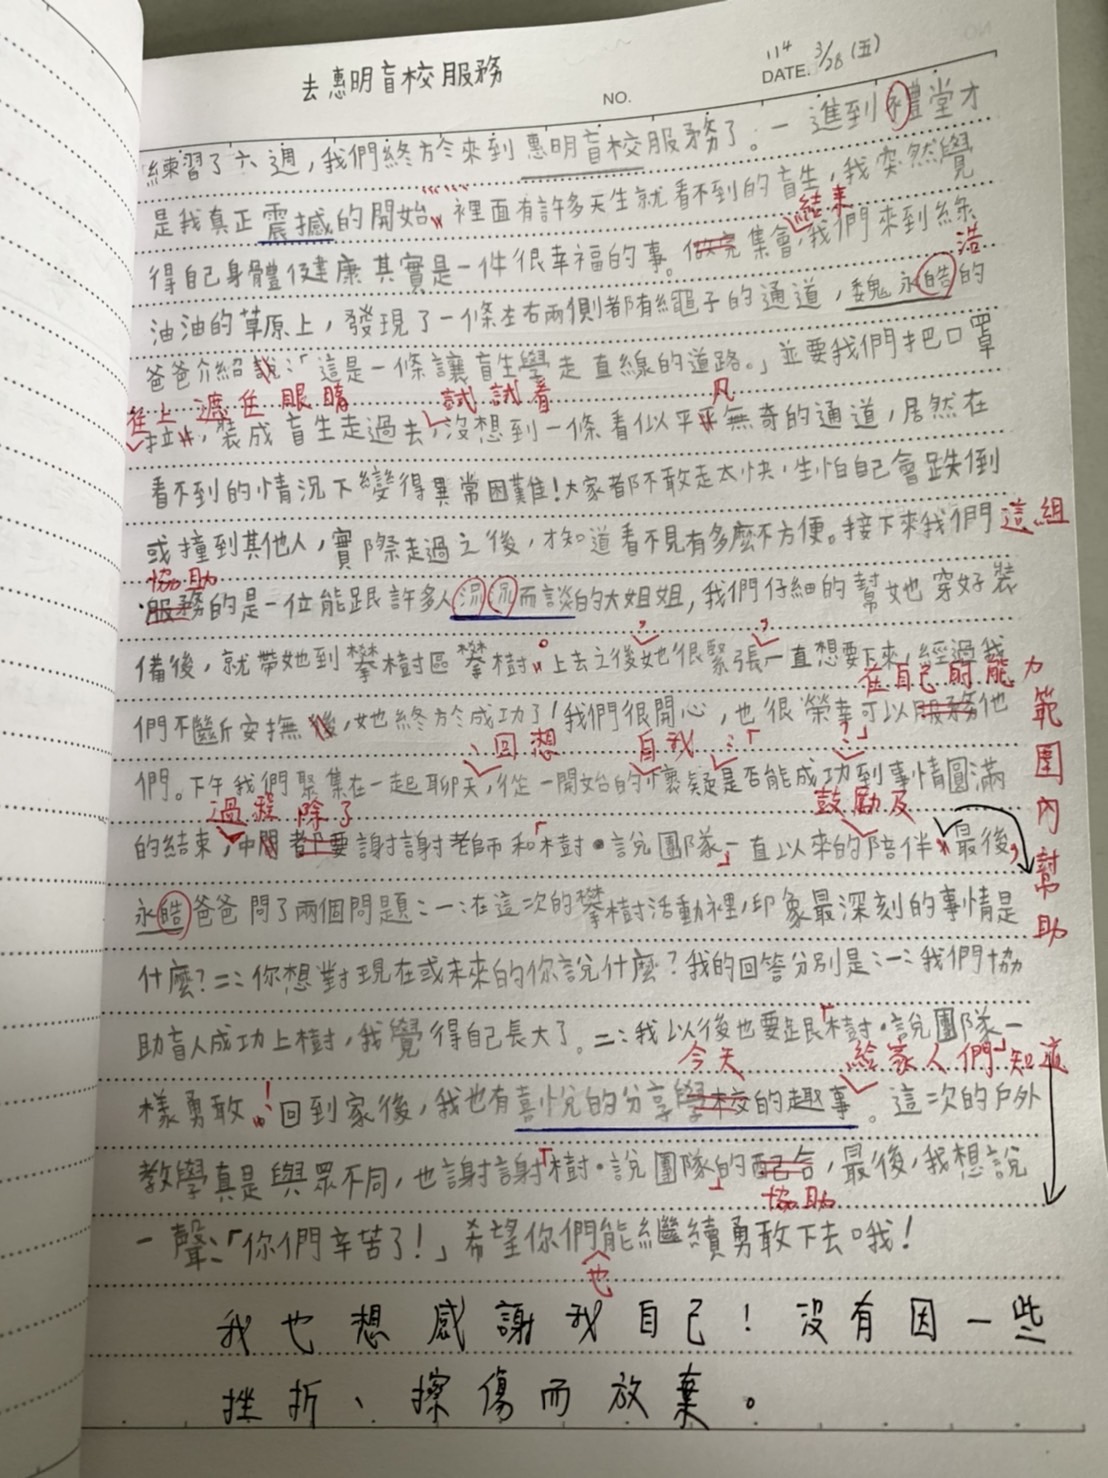 去惠明盲校服務
NO.
114
DATE. 3/28 (五)
練習了六週，我們終於來到惠明盲校服務了。一進到禮堂才
是我真正震撼的開始，裡面有許多天生就看不到的盲生，我突然覺
結束
得自己身體健康其實是一件很幸福的事。做完集會，我們來到綠
浩
油油的草原上，發現了一條左右兩側都有繩子的通道，魏永皓的
爸爸介紹說：「這是一條讓盲生學走直線的道路。」並要我們把口罩
往上遮住眼睛 試試看 凡
拉，裝成盲生走過去，沒想到一條看似平平無奇的通道，居然在
看不到的情況下變得異常困難！大家都不敢走太快，生怕自己會跌倒
或撞到其他人，實際走過之後，才知道看不見有多麼不方便。接下來我們這組
協助
服務的是一位能跟許多人侃侃而談的大姐姐，我們仔細的幫她穿好裝
備後，就帶她到攀樹區攀樹。上去之後，她很緊張，一直想要下來，經過我
在自己的能力範圍內幫助
們不斷安撫後，她終於成功了！我們很開心，也很榮幸可以服務他
、回想 自我 ：「 …」
們。下午我們聚集在一起聊天，從一開始的懷疑是否能成功到事情圓滿
過程 除了 鼓勵及
的結束，中間都要謝謝老師和「樹·說團隊」一直以來的陪伴，最後，
永皓爸爸問了兩個問題：一：在這次的攀樹活動裡，印象最深刻的事情是
什麼？二：你想對現在或未來的你說什麼？我的回答分別是：一：我們協
助盲人成功上樹，我覺得自己長大了。二：我以後也要跟「樹·說團隊」一
今天 給家人們知道
樣勇敢！回到家後，我也有喜悅的分享學校的趣事。這次的戶外
教學真是與眾不同，也謝謝「樹·說團隊」的配合，最後，我想說
協助
一聲：「你們辛苦了！」希望你們能繼續勇敢下去哦！
也
我也想感謝我自己！沒有因一些
挫折、擦傷而放棄。